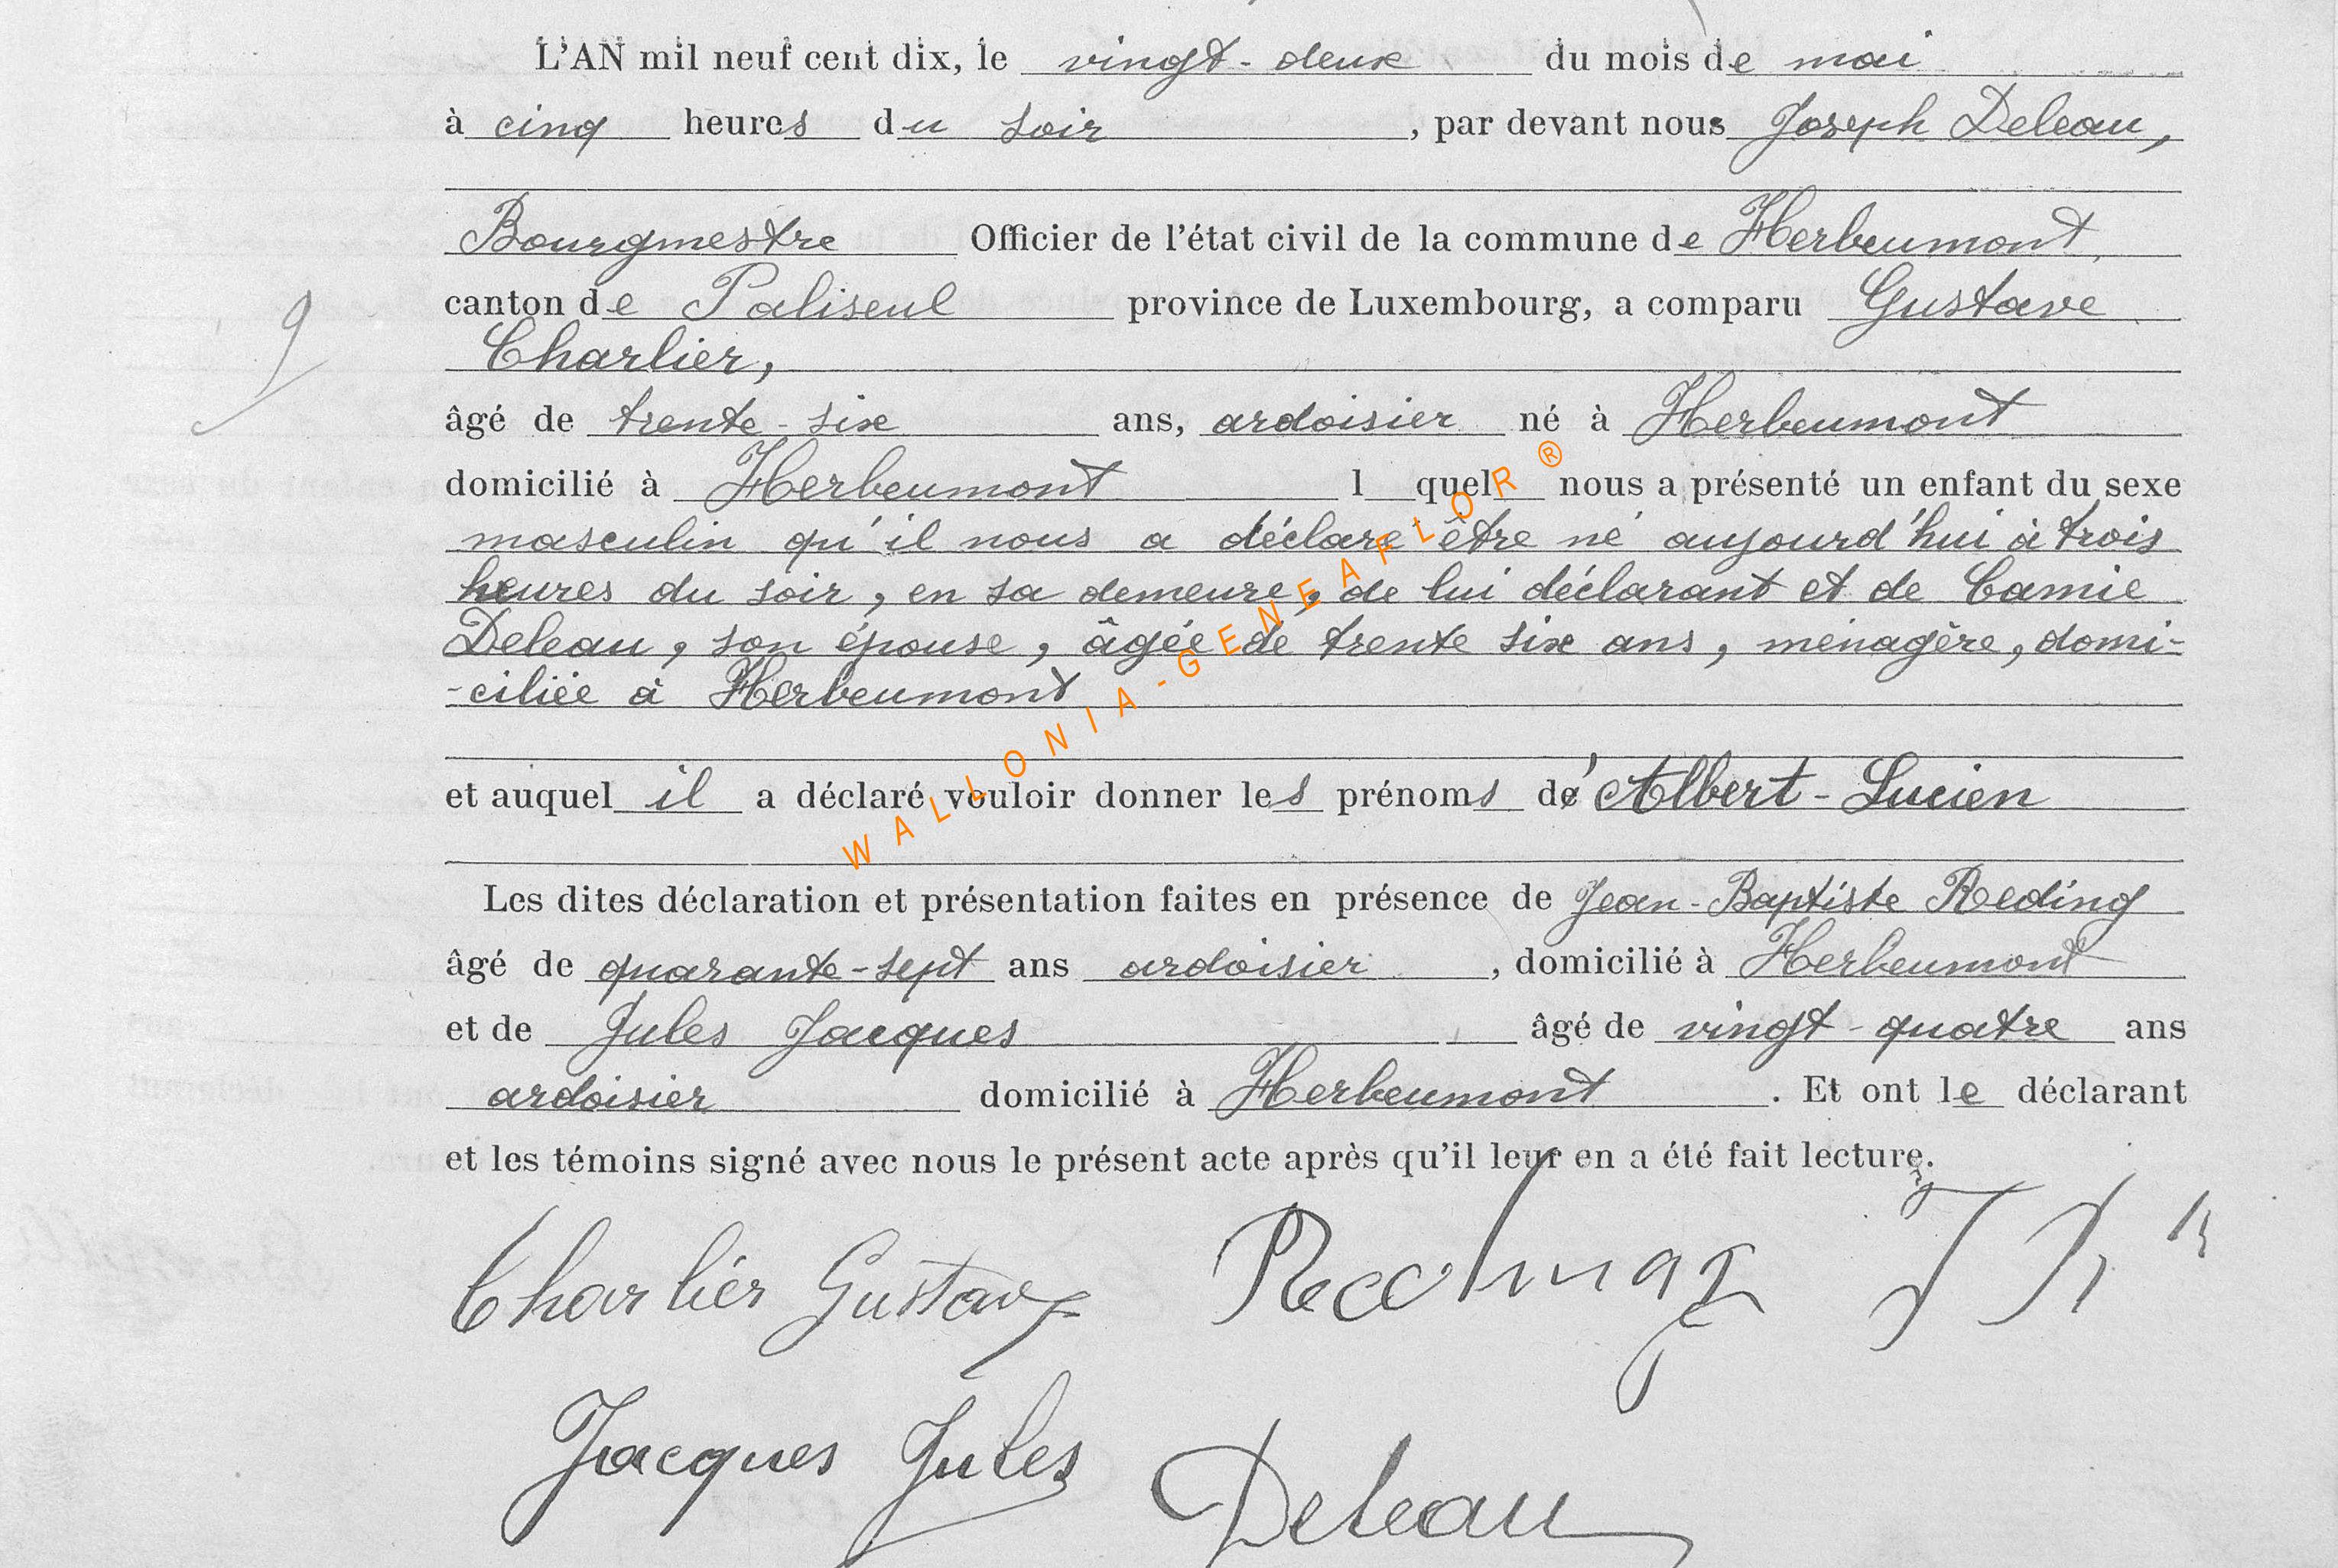 L'AN mil neuf cent dix, le vingt-deux du mois de mai
à cinq heures du soir, par devant nous Joseph Deleau,
Bourgmestre Officier de l'état civil de la commune de Herbeumont,
canton de Paliseul province de Luxembourg, a comparu Gustave
Charlier,
9
âgé de trente-six ans, ardoisier né à Herbeumont
domicilié à Herbeumont l quel nous a présenté un enfant du sexe
masculin qu'il nous a déclaré être né aujourd'hui à trois
heures du soir, en sa demeure, de lui déclarant et de Camie
Deleau, son épouse, âgée de trente six ans, ménagère, domi-
-ciliée à Herbeumont
et auquel il a déclaré vouloir donner les prénoms d'Albert-Lucien
WALLONIA-GENEAFLOR ®
Les dites déclaration et présentation faites en présence de Jean-Baptiste Reding
âgé de quarante-sept ans ardoisier, domicilié à Herbeumont
et de Jules Jacques âgé de vingt-quatre ans
ardoisier domicilié à Herbeumont. Et ont le déclarant
et les témoins signé avec nous le présent acte après qu'il leur en a été fait lecture.
Charlier Gustave
Jacques Jules Deleau